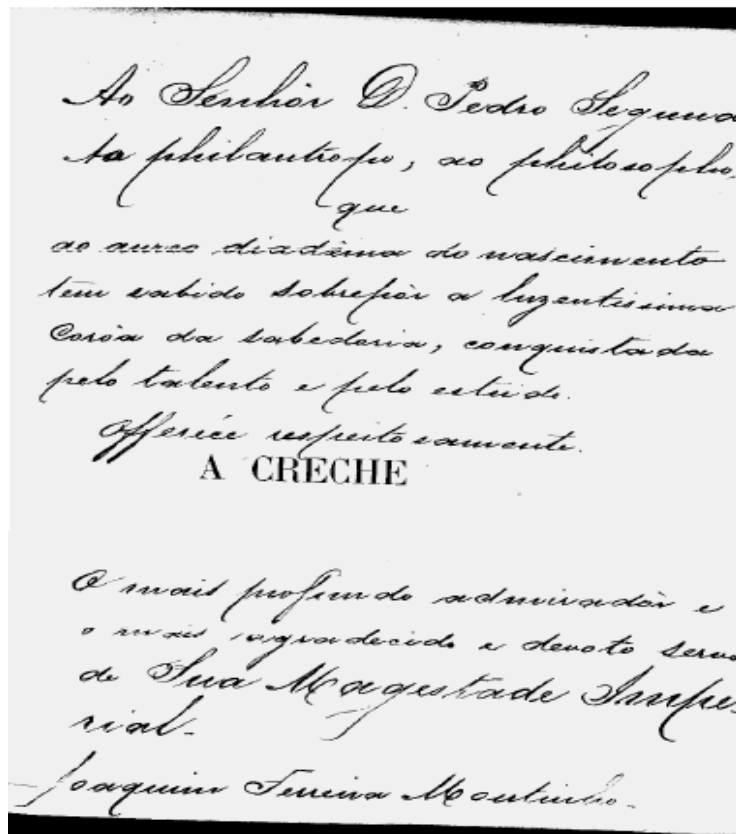 Ao Senhôr D. Pedro Segundo
Ao philantropo, ao philosopho,
que
ao aureo diadêma do nascimento
têm sabido sobrepôr a luzentissima
Corôa da sabedoria, conquistada
pelo talento e pelo estudo.
Offeréce respeitosamente.
A CRECHE
O mais profundo admiradôr e
o mais agradecido e devoto servo
de Sua Magestade Impe-
rial.
Joaquim Ferreira Moutinho.